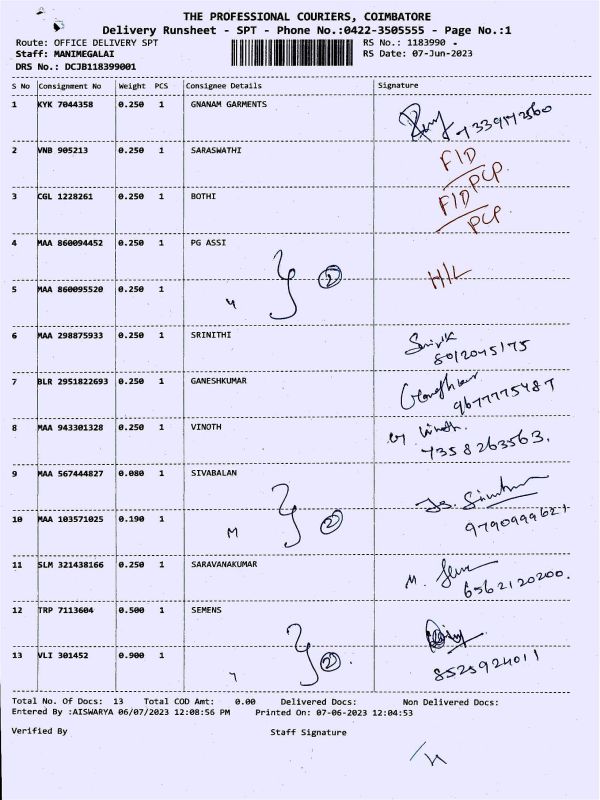 THE PROFESSIONAL COURIERS, COIMBATORE
Delivery Runsheet - SPT - Phone No.:0422-3505555 - Page No.:1
Route: OFFICE DELIVERY SPT RS No.: 1183990 -
Staff: MANIMEGALAI RS Date: 07-Jun-2023
DRS No.: DCJB118399001
S No Consignment No Weight PCS Consignee Details Signature
1 KYK 7044358 0.250 1 GNANAM GARMENTS
2 VNB 905213 0.250 1 SARASWATHI F1D
PCP
3 CGL 1228261 0.250 1 BOTHI F1D
PCP
4 MAA 860094452 0.250 1 PG ASSI H/L
2
5 MAA 860095520 0.250 1
6 MAA 298875933 0.250 1 SRINITHI
8012045175
7 BLR 2951822693 0.250 1 GANESHKUMAR
9677775487
8 MAA 943301328 0.250 1 VINOTH Vinoth.
7358263563.
9 MAA 567444827 0.080 1 SIVABALAN
2
10 MAA 103571025 0.190 1 M
11 SLM 321438166 0.250 1 SARAVANAKUMAR M.
6562120200.
12 TRP 7113604 0.500 1 SEMENS
2
13 VLI 301452 0.900 1 8525924011
Total No. Of Docs: 13 Total COD Amt: 0.00 Delivered Docs: Non Delivered Docs:
Entered By :AISWARYA 06/07/2023 12:08:56 PM Printed On: 07-06-2023 12:04:53
Verified By Staff Signature